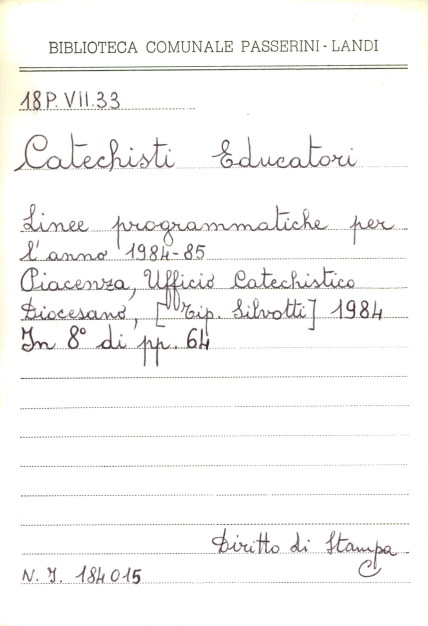 BIBLIOTECA COMUNALE PASSERINI - LANDI
18P. VII. 33
Catechisti Educatori
Linee programmatiche per
l'anno 1984-85
Piacenza, Ufficio Catechistico
Diocesano, [Tip. Silvotti] 1984
In 8° di pp. 64
Diritto di Stampa
N. I. 184015